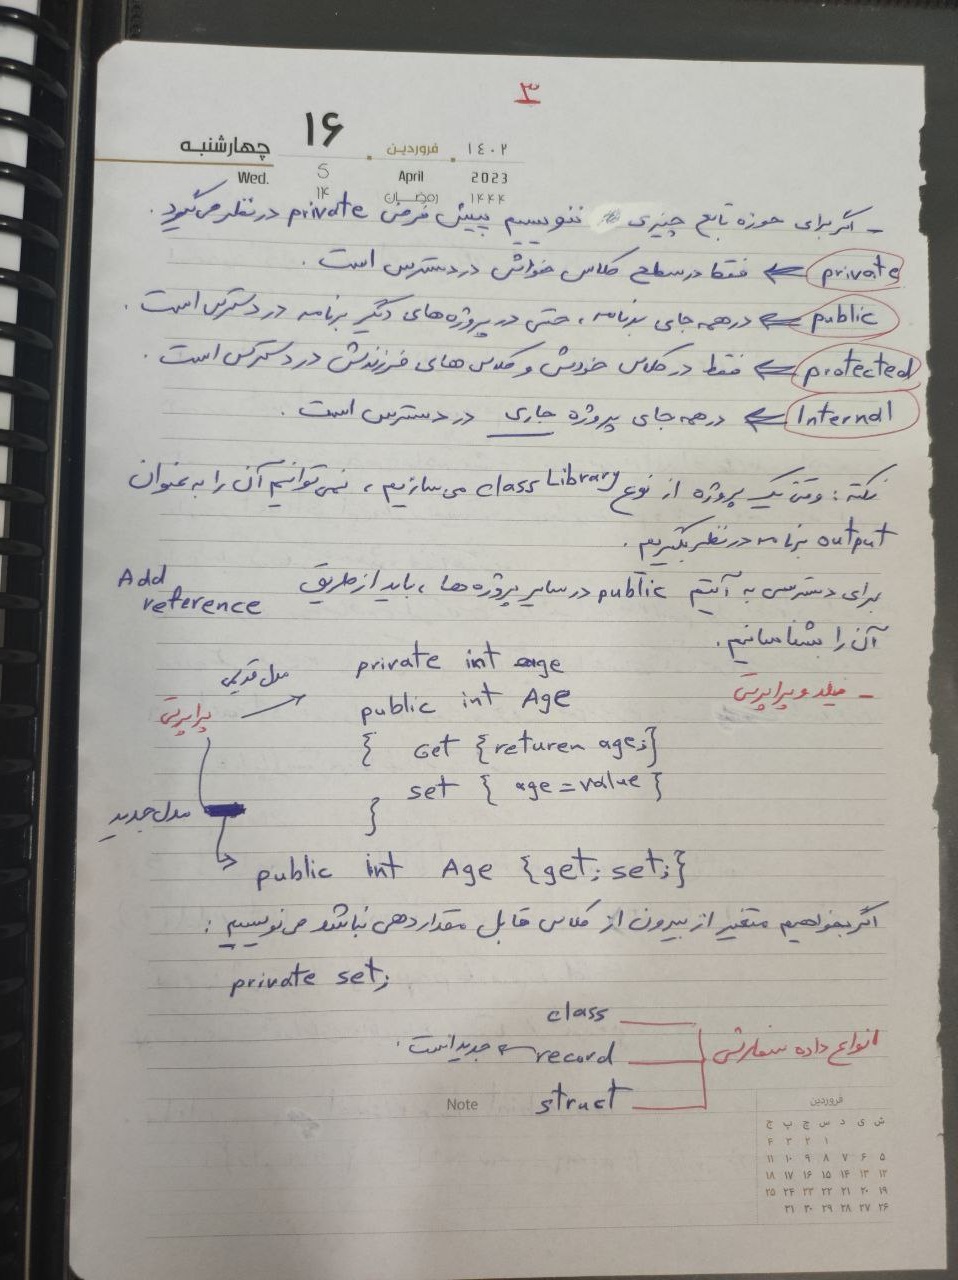 ۳
چهارشنبه ۱۶ فروردین ۱۴۰۲
Wed. 5 April 2023
۱۴ رمضان ۱۴۴۴
- اگر برای حوزه تابع چیزی ننویسیم پیش فرض private در نظر می‌گیرد.
private ⇐ فقط در سطح کلاس خودش در دسترس است.
public ⇐ در همه جای برنامه، حتی در پروژه های دیگر برنامه در دسترس است.
protected ⇐ فقط در کلاس خودش و کلاس های فرزندش در دسترس است.
Internal ⇐ در همه جای پروژه جاری در دسترس است.
نکته: وقتی یک پروژه از نوع class Library می سازیم، نمی توانیم آن را به عنوان
output برنامه در نظر بگیریم.
برای دسترسی به آیتم public در سایر پروژه ها، باید از طریق Add reference
آن را بشناسانیم.
- فیلد و پراپرتی
private int age
پراپرتی → مدل قدیمی
public int Age
{ Get {returen age;}
set { age = value }
}
مدل جدید
public int Age {get; set;}
اگر بخواهیم متغیر از بیرون از کلاس قابل مقداردهی نباشد می نویسیم:
private set;
انواع داده سفارشی
class
record → جدید است.
struct
Note
فروردین
ش ی د س چ پ ج
۱ ۲ ۳ ۴
۵ ۶ ۷ ۸ ۹ ۱۰ ۱۱
۱۲ ۱۳ ۱۴ ۱۵ ۱۶ ۱۷ ۱۸
۱۹ ۲۰ ۲۱ ۲۲ ۲۳ ۲۴ ۲۵
۲۶ ۲۷ ۲۸ ۲۹ ۳۰ ۳۱